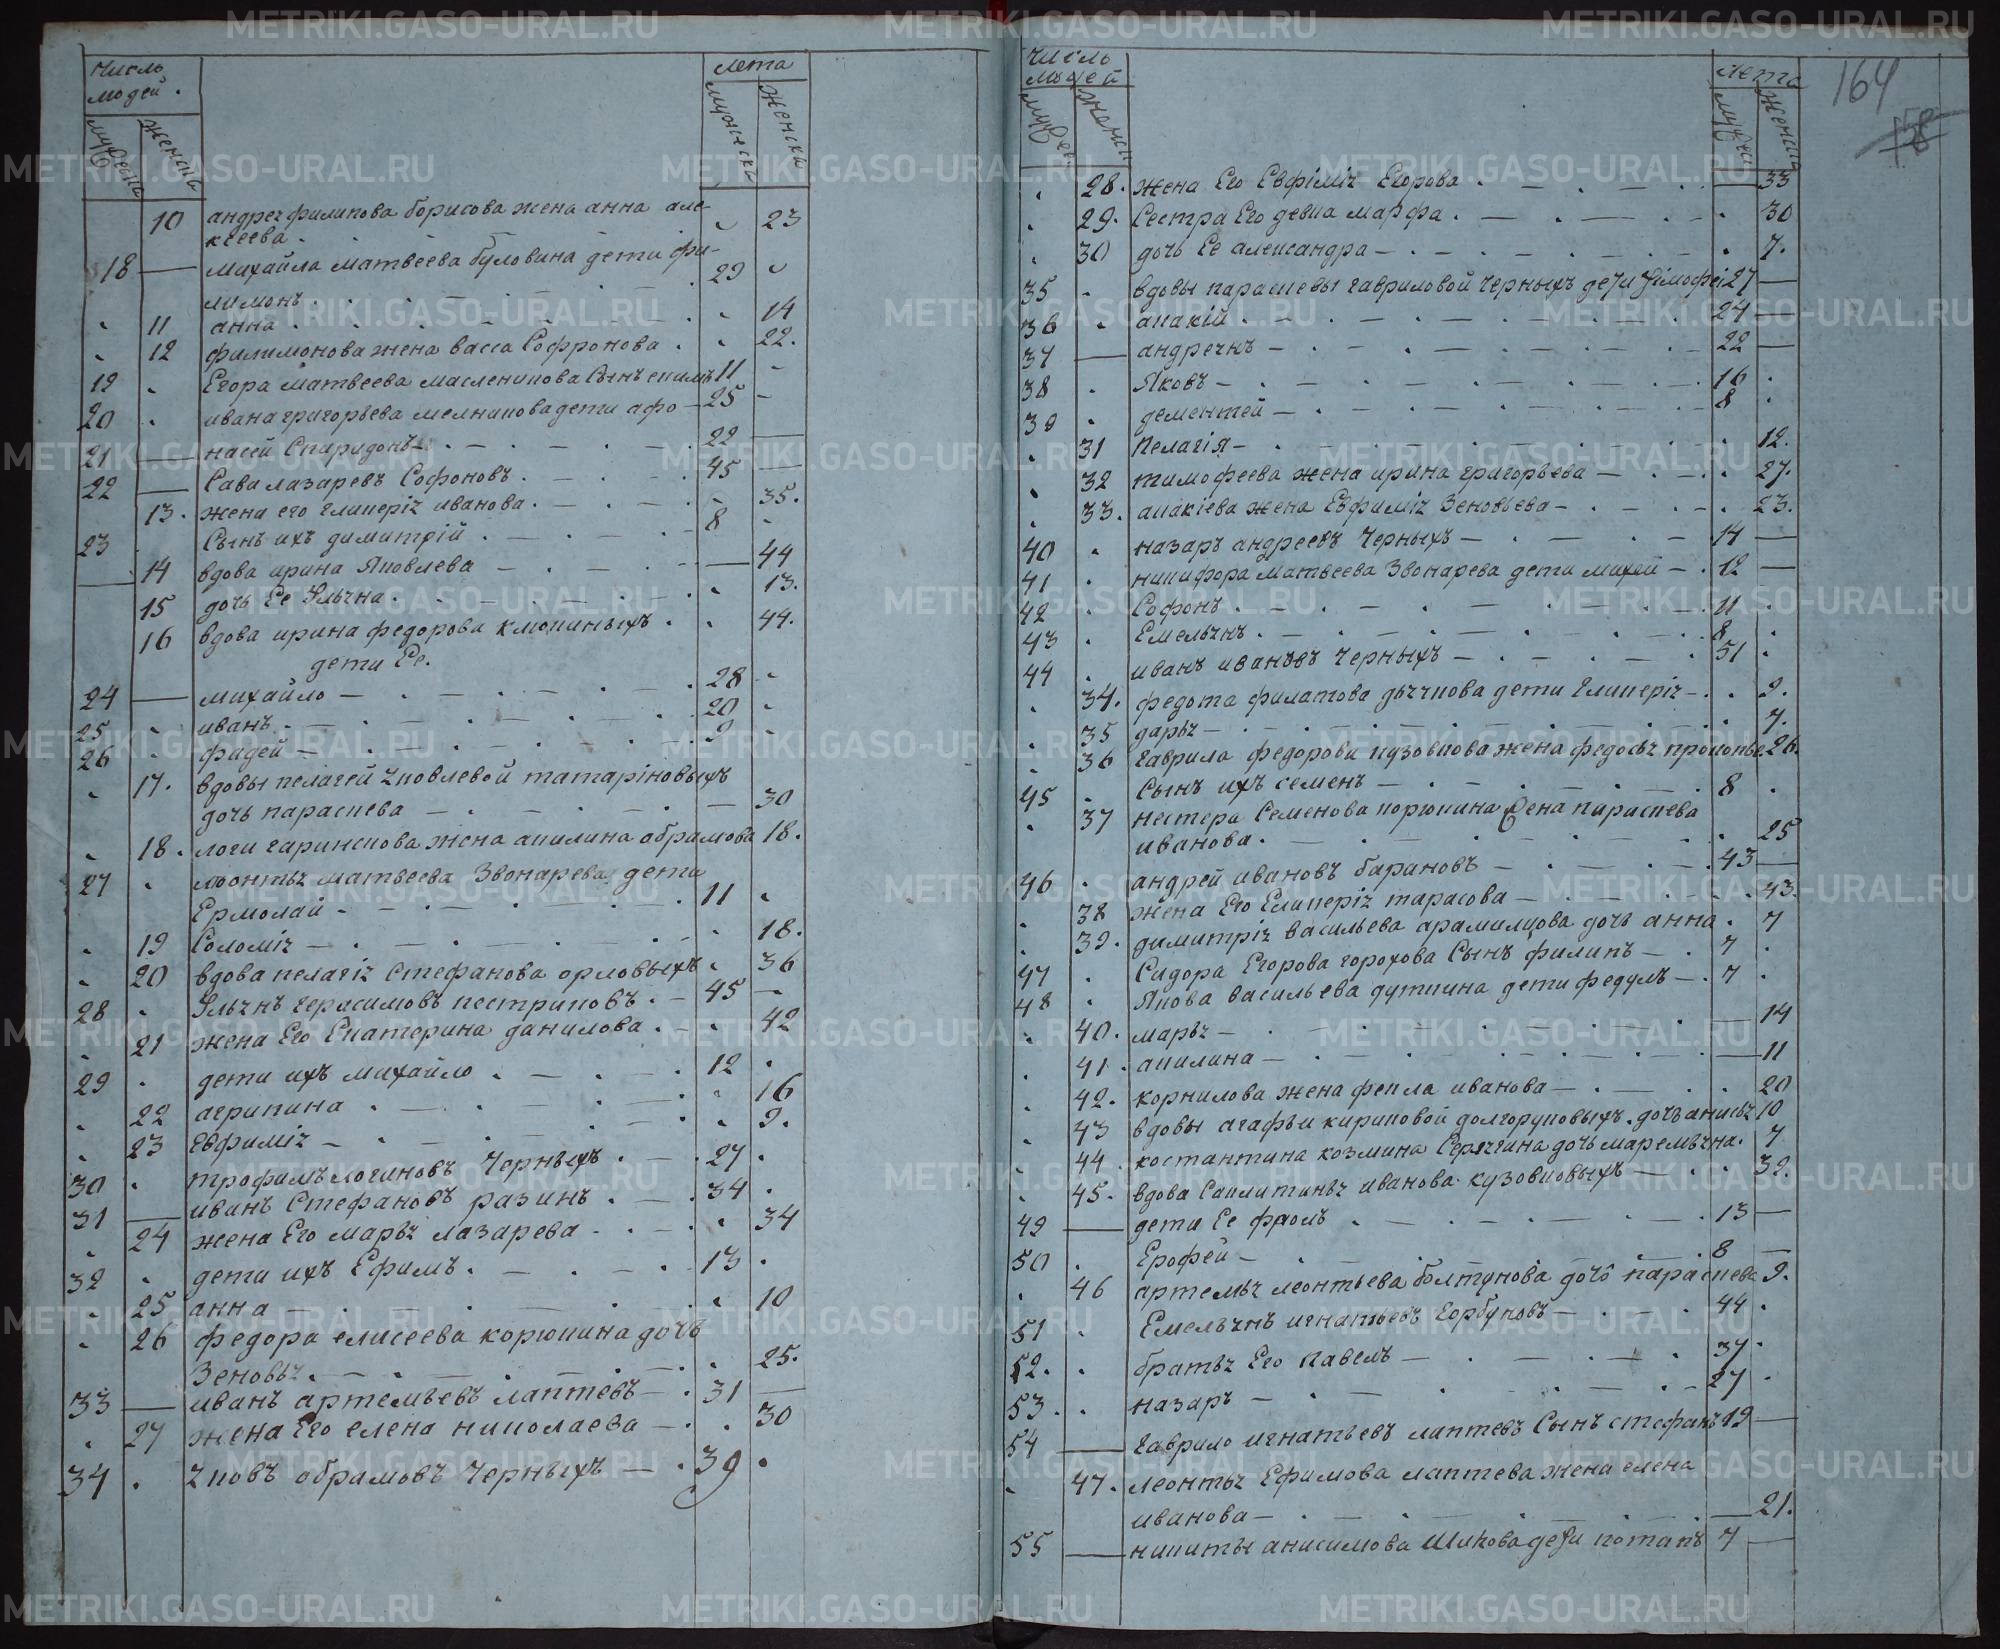 число людей.
лета
мужеска
женска
мужеска
женска
10 андреч филипова борисова жена анна але- 23
ксеева.
18 михайла матвеева буловина дети фи-
лимонъ 29
11 анна 14
12 филимонова жена васса Софронова 22.
19 Егора матвеева масленикова Сынъ екимъ 11
20 ивана григорьева мелникова дети афо- 25
21 насей Спиридонъ 22
22 Сава лазаревъ Софоновъ 45
13. жена его гликеріч иванова 35.
23 Сынъ ихъ димитрій 8
14 вдова ирина Яковлева 44
15 дочь Ее Ульчна 13.
16 вдова ирина федорова клюкиныхъ 44.
дети Ее.
24 михайло 28
25 иванъ 20
26 фадей 9
17. вдовы пелагей чковлевой татаріновыхъ
дочь параскева 30
18. логи гаринскова жена акилина обрамова 18.
27 леонтьч матвеева Звонарева дети
Ермолай 11
19 Соломіч 18.
20 вдова пелагіч Стефанова орловыхъ 36
28 Ульчнъ герасимовъ пестриковъ 45
21 жена Его Екатерина данилова 42
29 дети ихъ михайло 12
22 агрипина 16
23 Евфиміч 9.
30 трофимъ логиновъ Черныхъ 27
31 иванъ Стефановъ разинъ 34
24 жена Его марьч лазарева 34
32 дети ихъ Ефимъ 13
25 анна 10
26 федора елисеева корюкина дочь
Зеновьч 25.
33 иванъ артемьевъ лаптевъ 31
27 жена Его елена николаева 30
34 чковъ обрамовъ Черныхъ 39
число людей
лета
женска
женска
164
158
28. жена Его Евфиміч Егорова 33
29. Сестра Его девка марфа 30
30 дочь Ее александра 7.
35 вдовы парашевы гавриловой Черныхъ дети тімофей 27
36 акакій 24
37 андречнъ 22
38 Яковъ 16
39 дементей 8
31 Пелагія 12.
32 тимофеева жена ирина григорьева 27.
33. акакіева жена Евфиміч Зеновьева 23.
40 назаръ андреевъ Черныхъ 14
41 никифора матвеева Звонарева дети михей 12
42 Софонъ 11
43 Емельчнъ 8
44 иванъ ивановъ Черныхъ 51
34. федота филатова дьччкова дети Гликеріч 9.
35 дарьч 7.
36 гаврила федорова кузовкова жена федосьч прокопье 26.
45 Сынъ ихъ семенъ 8
37 нестера Семенова корюкина жена параскева
иванова. 25
46 андрей ивановъ барановъ 43
38 жена Его Гликеріч тарасова 43.
39. димитріч васильева арамилцова дочь анна 7
47 Сидора Егорова горохова Сынъ филипъ 7
48 Якова васильева дуткина дети федулъ 7
40. марьч 14
41. акилина 11
42. корнилова жена фекла иванова 20
43 вдовы агафьи кириковой долгоруковыхъ дочь анисьч 10
44 костантина козмина Серчгина дочь маремьчна. 7
45. вдова Саклитиньч иванова кузовковыхъ 39.
49 дети Ее фролъ 13
50 Ерофей 8
46 артемьч леонтьева болтунова дочь параскева 9.
51 Емельчнъ игнатьевъ горбуновъ 44
52. братьч Его павелъ 37
53. назаръ 27
54 гаврило игнатьевъ лаптевъ Сынъ стефанъ 19
47. леонтьч Ефимова лаптева жена елена
иванова 21.
55 никиты анисимова Шикова дети потапъ 7